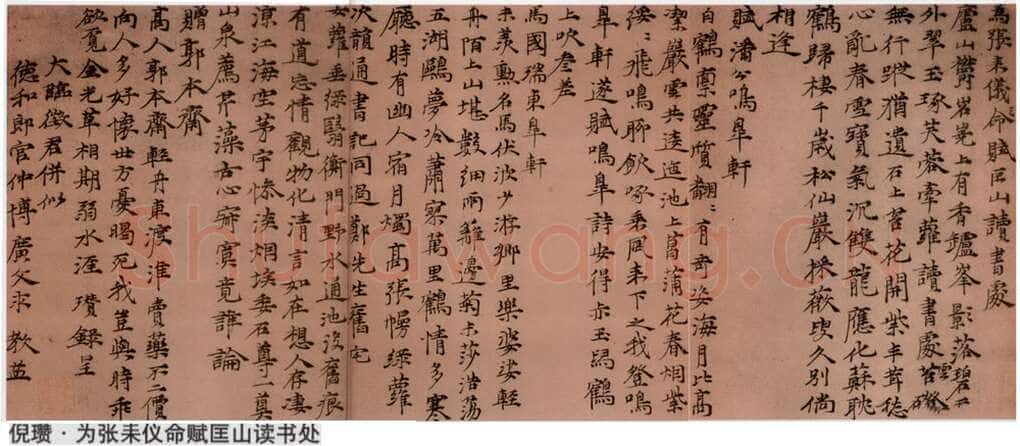 為張耒儀命賦匡山讀書處
廬山欝岧嶤上有香鑪峯影落碧
外翠玉琢芙蓉牽蘿讀書處苔磴
無行蹤猶遺石上苔花開紫丰茸嵇
心亂春雪寶氣沉雙龍應化蘇耽
鶴歸棲千歲松仙巖採薇叟久別倘
相逢
賦潘公鳴皐軒
白鶴稟靈質翩〻有奇姿海月比高
潔嚴雲共逶迤池上菖蒲花春烟紫
緌〻飛鳴聊飲啄乘風来下之我登鳴
皐軒遂賦鳴皐詩安得赤玉舄鶴
上吹參差
馬國瑞東皐軒
未羨勲名馬伏波少游鄉里樂婆娑輕
舟陌上山堪數細雨籬邊菊未莎浩蕩
五湖鷗夢冷蕭寥萬里鶴情多寒
廳時有幽人宿月燭高張幌綠蘿
次韻通書記同過鄭先生舊宅
女蘿垂綠翳衡門野水通池沒舊痕
有道忘情觀物化清言如在想人存凄
凉江海空茅宇惨淡烟埃委石尊一奠
山泉薦芹藻古心寂寞竟誰論
贈郭本齋
高人郭本齋輕舟東渡淮賣藥不二價
向人多好懷世方憂暍死我豈與時乖
欲覓金光草相期弱水涯 瓚錄呈
大臨徵君併似
德和郎官仲博廣文求 教益
Shufawang.CN
倪瓒·为张耒仪命赋匡山读书处